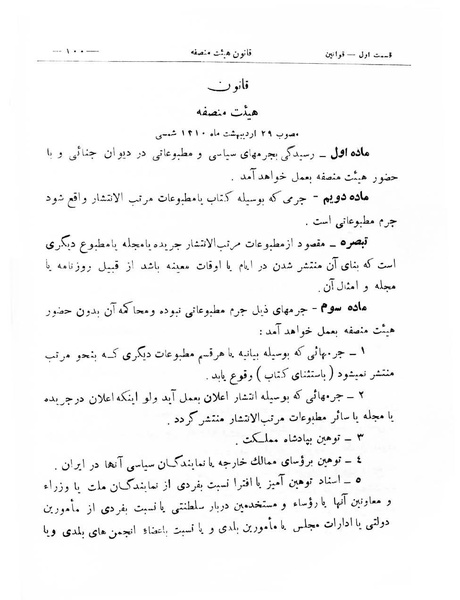 قسمت اول — قوانین    قانون هیئت منصفه    — ۱۰۰ —
قانون
هیئت منصفه
مصوب ۲۹ اردیبهشت ماه ۱۳۱۰ شمسی
ماده اول ـ رسیدگی بجرمهای سیاسی و مطبوعاتی در دیوان جنائی و با
حضور هیئت منصفه بعمل خواهد آمد .
ماده دویم ـ جرمی که بوسیله کتاب یامطبوعات مرتب الانتشار واقع شود
جرم مطبوعاتی است .
تبصره ـ مقصود ازمطبوعات مرتب‌الانتشار جریده یامجله یامطبوع دیگری
است که بنای آن منتشر شدن در ایام یا اوقات معینه باشد از قبیل روزنامه یا
مجله و امثال آن .
ماده سوم ـ جرمهای ذیل جرم مطبوعاتی نبوده ومحاکمه آن بدون حضور
هیئت منصفه بعمل خواهد آمد :
۱ ـ جرمهائی که بوسیله بیانیه یا هرقسم مطبوعات دیگری کـه بنحو مرتب
منتشر نمیشود ( باستثنای کتاب ) وقوع یابد .
۲ ـ جرمهائی که بوسیله انتشار اعلان بعمل آید ولو اینکه اعلان درجریده
یا مجله یا سائر مطبوعات مرتب‌الانتشار منتشر گردد .
۳ ـ توهین بپادشاه مملکت .
٤ ـ توهین برؤسای ممالك خارجه یا نمایندگان سیاسی آنها در ایران .
٥ ـ اسناد توهین آمیز یا افترا نسبت بفردی از نمایندگان ملت یا وزراء
و معاونین آنها یا رؤساء و مستخدمین دربار سلطنتی یا نسبت بفردی از مأمورین
دولتی یا ادارات مجلس یا مأمورین بلدی و یا نسبت باعضاء انجمن های بلدی ویا